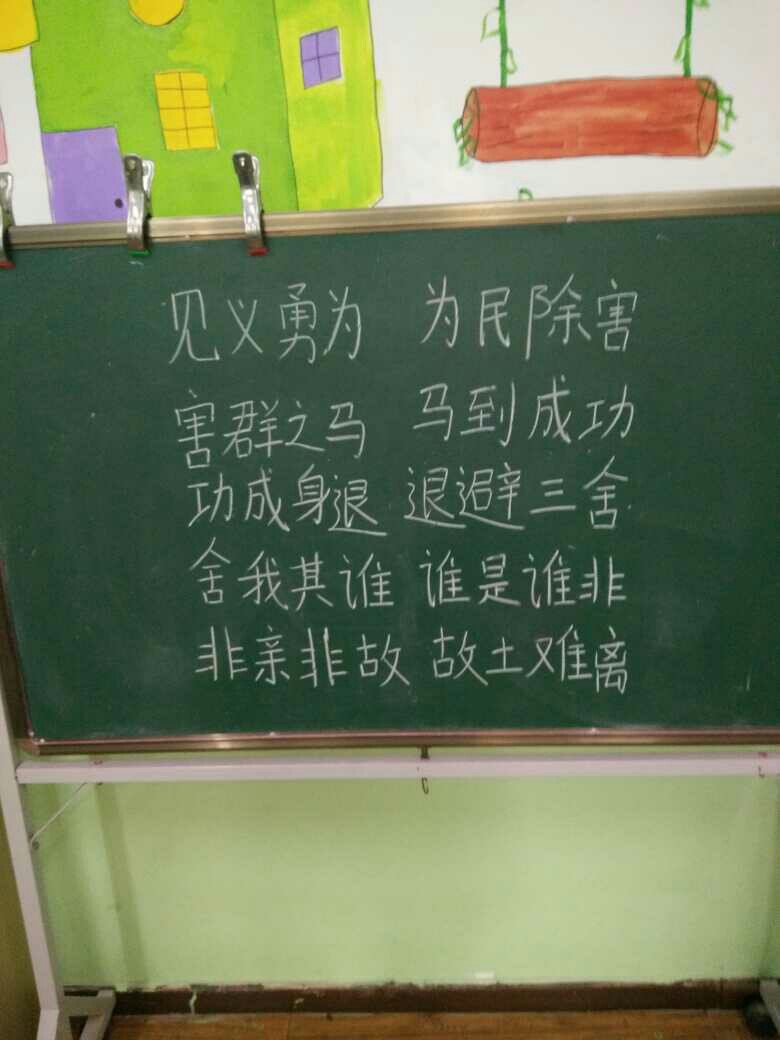 见义勇为 为民除害
害群之马 马到成功
功成身退 退避三舍
舍我其谁 谁是谁非
非亲非故 故土难离